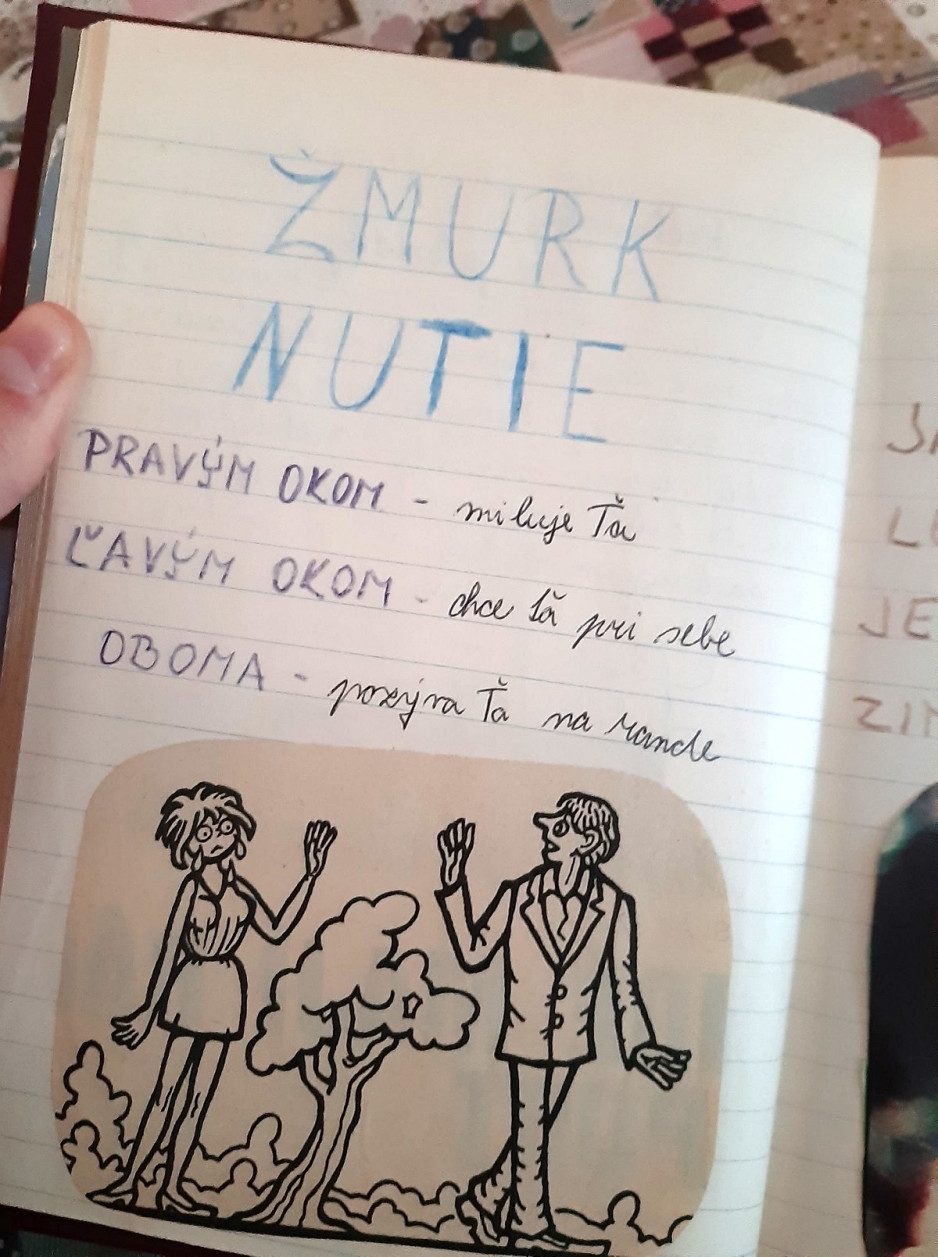 ŽMURK
NUTIE
PRAVÝM OKOM - miluje Ťa
ĽAVÝM OKOM - chce ťa pri sebe
OBOMA - pozýva Ťa na rande
JE